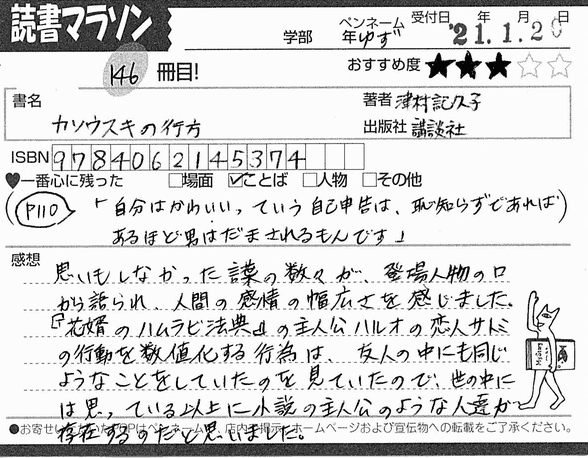 読書マラソン
学部 年 ペンネーム ゆず 受付日 '21年1月20日
146冊目!
おすすめ度 ★★★☆☆
書名 カソウスキの行方
著者 津村記久子
出版社 講談社
ISBN 9784062145374
♥一番心に残った □場面 ☑ことば □人物 □その他
(P110 「自分はかわいい、っていう自己申告は、恥知らずであれば
あるほど男はだまされるもんです」)
感想
思いもしなかった言葉の数々が、登場人物の口
から語られ、人間の感情の幅広さを感じました。
『花婿のハムラビ法典』の主人公ハルオの恋人サトミ
の行動を数値化する行為は、友人の中にも同じ
ようなことをしていたのを見ていたので、世の中に
は思っている以上に小説の主人公のような人達が
存在するのだと思いました。
●お寄せいただいたPOPはペンネームで、店内で掲示・ホームページおよび宣伝物への転載をご了承ください。